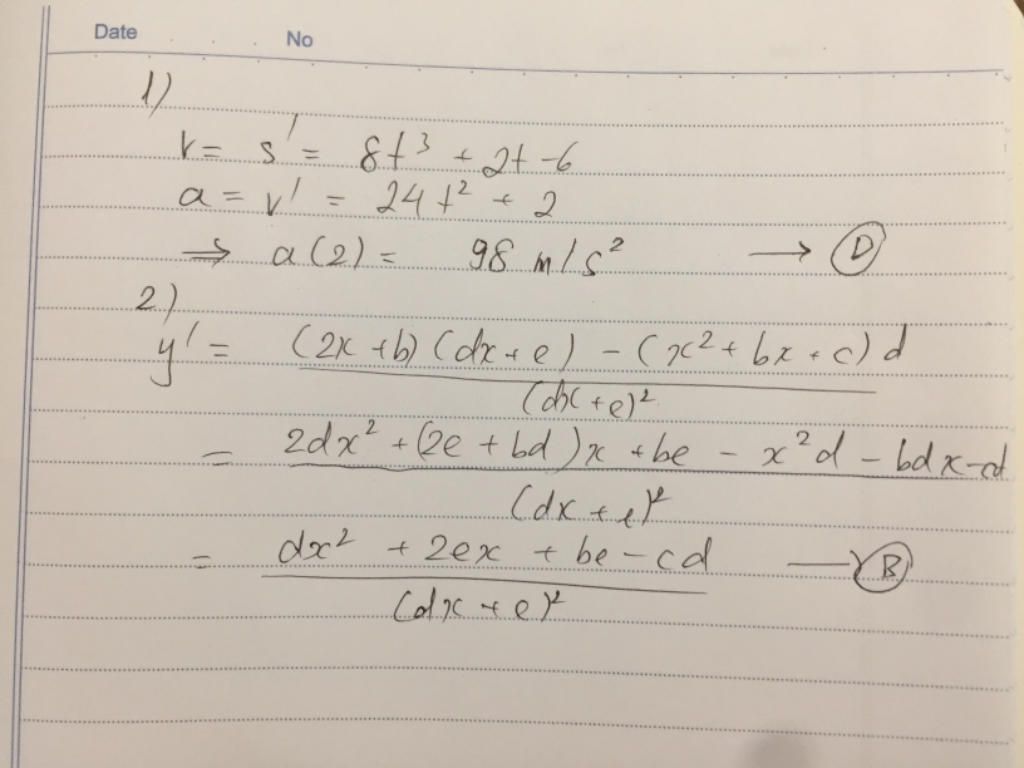 Date No
1)
v = s' = 8t³ + 2t - 6
a = v' = 24t² + 2
⇒ a(2) = 98 m/s² → D
2)
y' = (2x + b)(dx + e) - (x² + bx + c)d
(dx + e)²
= 2dx² + (2e + bd)x + be - x²d - bdx - cd
(dx + e)²
= dx² + 2ex + be - cd → B
(dx + e)²